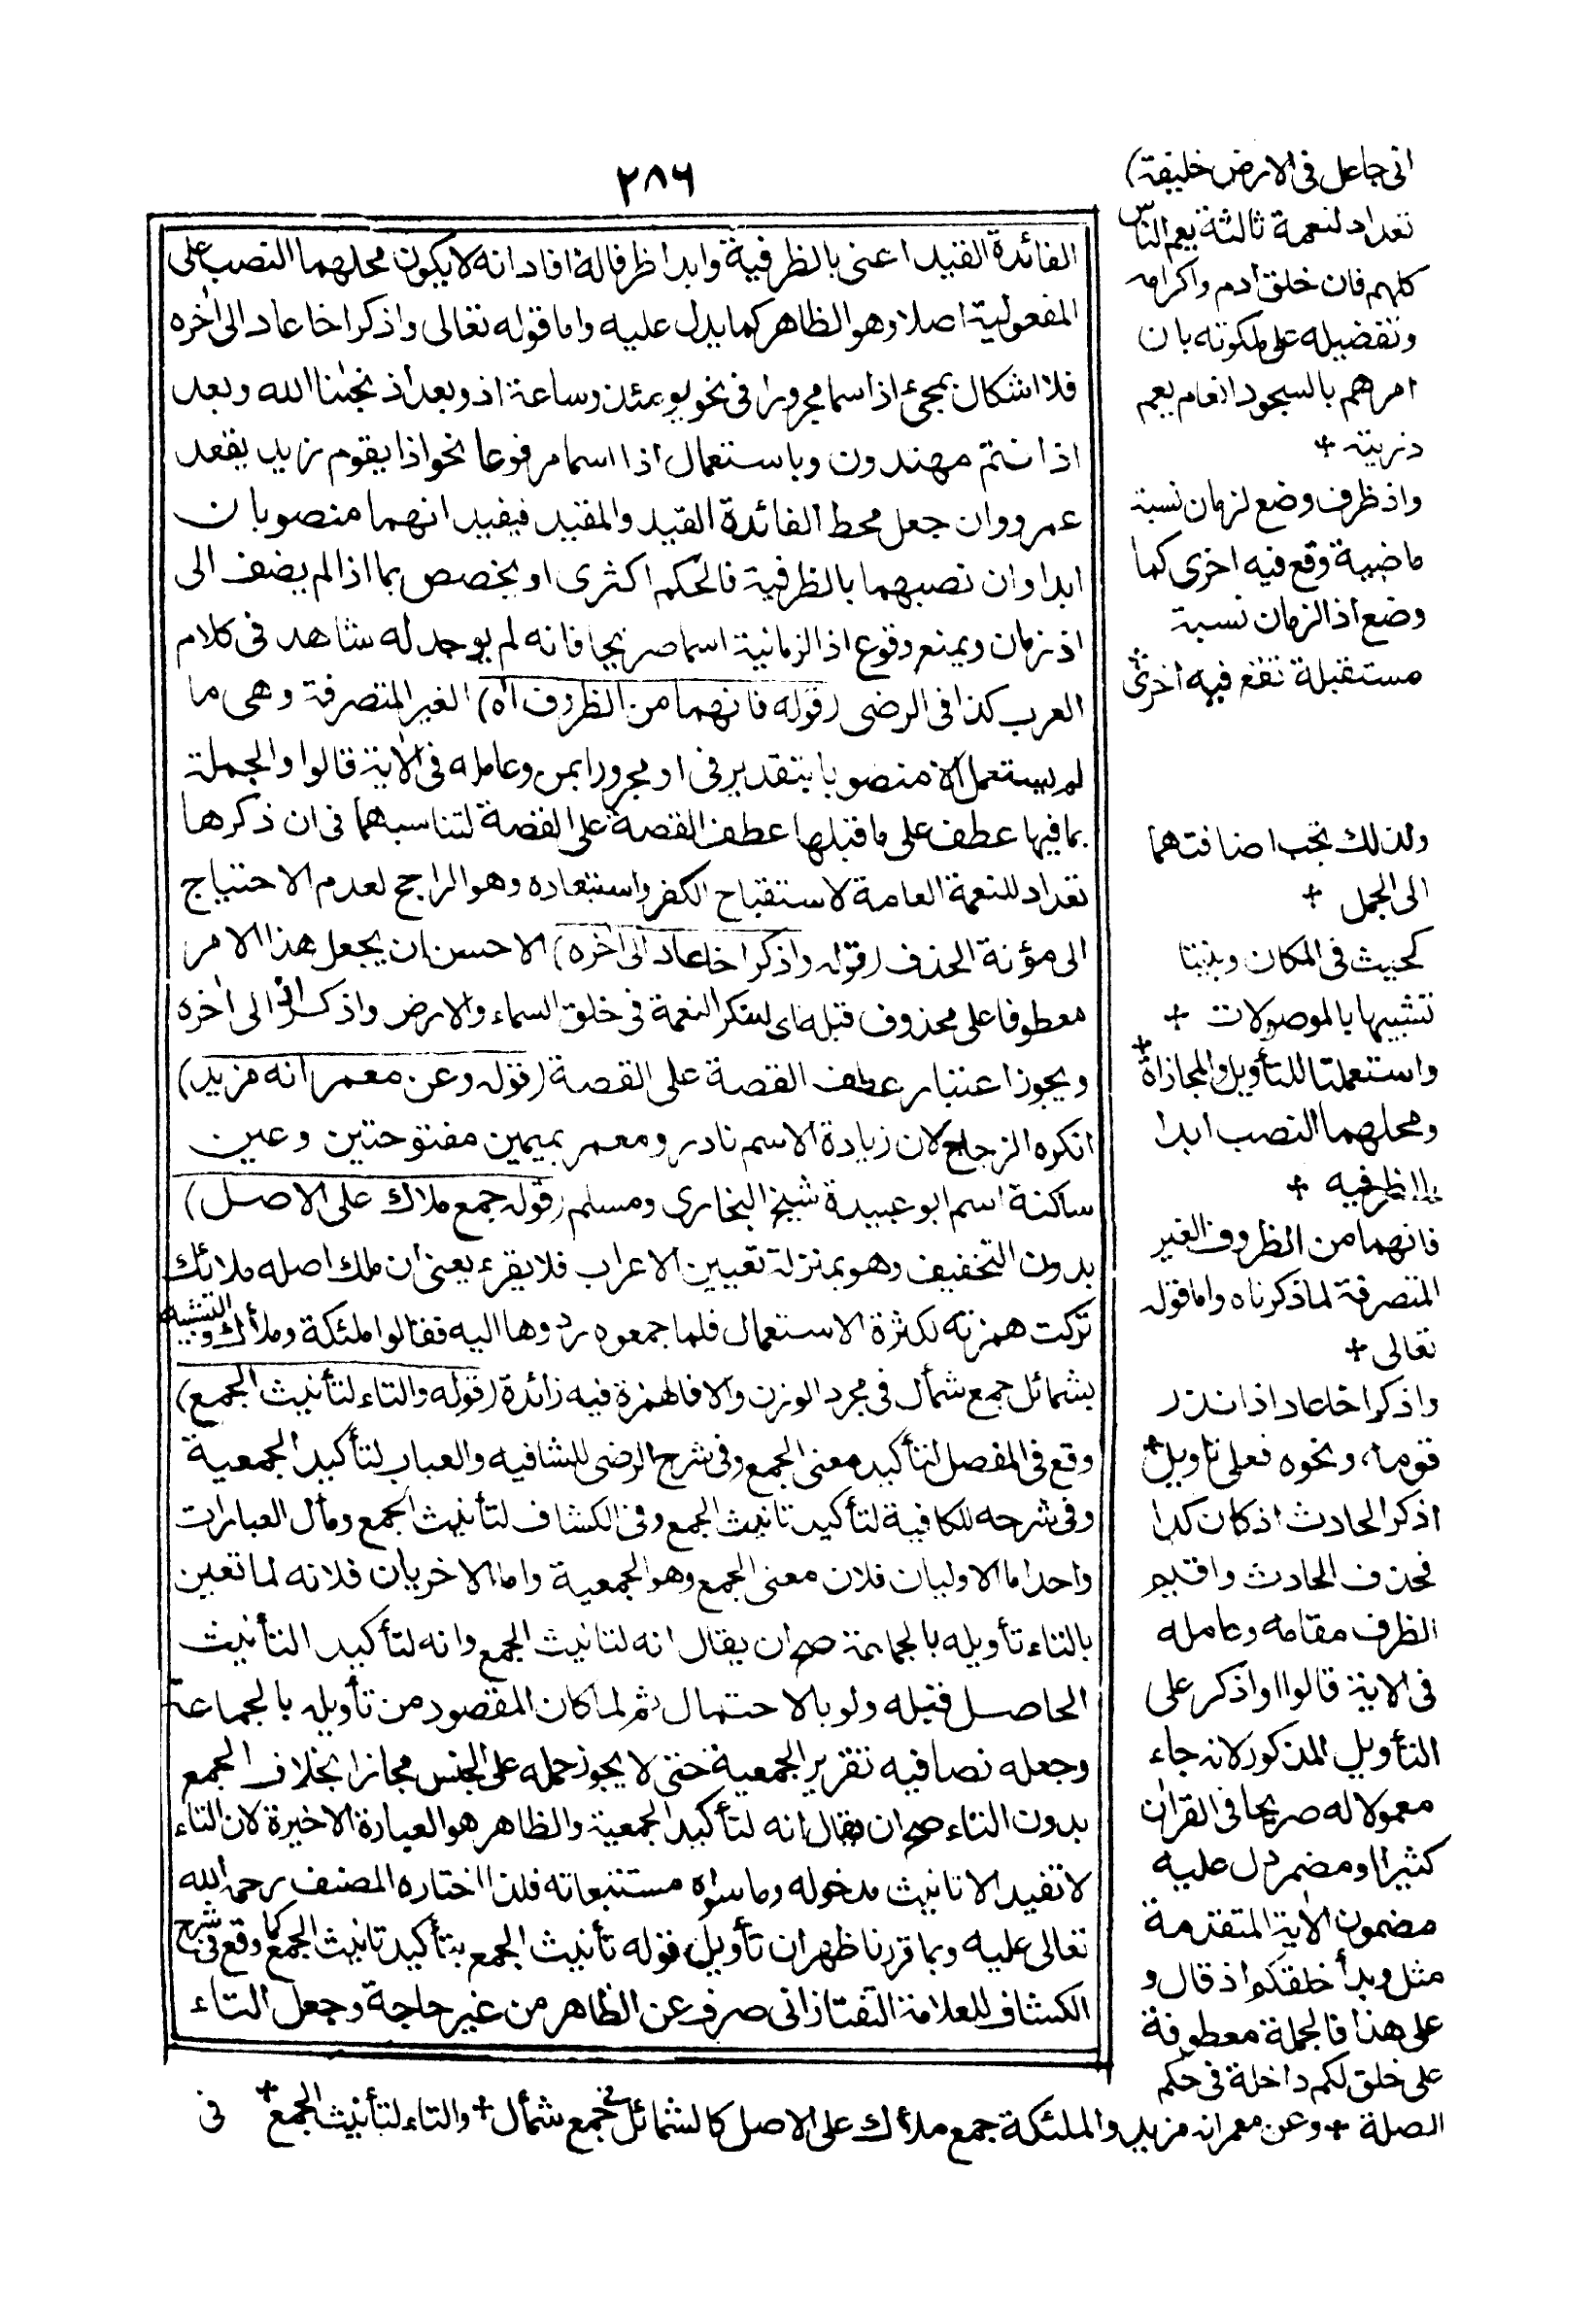 ٢٨٦
الفائدة القيد اعنى بالظرفية وابدا ظرفا له افاد انه لا يكون محلهما النصب على
المفعولية اصلا وهو الظاهر كما يدل عليه واما قوله تعالى واذكر اخا عاد الى اٰخره
فلا اشكال بمجئ اذ اسما مجرورا فى نحو يومئذ وساعة اذ وبعد اذ نجٰنا الله وبعد
اذ انتم مهتدون وباستعمال اذا اسما مرفوعا نحو اذا يقوم زيد يقعد
عمرو وان جعل محط الفائدة القيد والمقيد فيفيد انهما منصوبان
ابدا وان نصبهما بالظرفية فالحكم اكثرى او يخصص بما اذا لم يضف الى
اذ زمان ويمنع وقوع اذ الزمانية اسما صريحا فانه لم يوجد له شاهد فى كلام
العرب كذا فى الرضى (قوله فانهما من الظروف اه) الغير المتصرفة وهى ما
لم يستعمل الا منصوبا بتقدير فى او مجرورا بمن وعامله فى الاٰية قالوا والجملة
بما فيها عطف على ما قبلها عطف القصة على القصة لتناسبهما فى ان ذكرها
تعداد للنعمة العامة لاستقباح الكفر واستبعاده وهو الراجح لعدم الاحتياج
الى مؤنة الحذف (قوله واذكر اخا عاد الى اٰخره) الاحسن ان يجعل هذا الامر
معطوفا على محذوف قبله اى اشكر النعمة فى خلق السماء والارض واذكر الى اٰخره
ويجوز اعتبار عطف القصة على القصة (قوله وعن معمر انه مزيد)
انكره الزجاج لان زيادة الاسم نادر ومعمر بميمين مفتوحتين وعين
ساكنة اسم ابو عبيدة شيخ البخارى ومسلم (قوله جمع ملاك على الاصل)
بدون التخفيف وهو بمنزلة تعيين الاعراب فلا يقرء يعنى ان ملك اصله ملائك
تركت همزته لكثرة الاستعمال فلما جمعوه ردوها اليه فقالوا ملئكة وملأك والتشبيه
بشمائل جمع شمأل فى مجرد الوزن والا فالهمزة فيه زائدة (قوله والتاء لتأنيث الجمع)
وقع فى المفصل لتأكيد معنى الجمع وفى شرح الرضى للشافيه والعباب لتأكيد الجمعية
وفى شرحه للكافية لتأكيد تانيث الجمع وفى الكشاف لتأنيث الجمع ومأل العبارات
واحد اما الاوليان فلان معنى الجمع وهو الجمعية واما الاخريان فلانه لما تعين
بالتاء تأويله بالجماعة صح ان يقال انه لتانيث الجمع وانه لتأكيد التأنيث
الحاصل قبله ولو بالاحتمال ثم لما كان المقصود من تأويله بالجماعة
وجعله نصا فيه تقرير الجمعية حتى لا يجوز حمله على الجنس مجازا بخلاف الجمع
بدون التاء صح ان يقال انه لتأكيد الجمعية والظاهر هو العبارة الاخيرة لان التاء
لا تفيد الا تانيث مدخوله وما سواه مستتبعاته فلذا اختاره المصنف رحمه الله
تعالى عليه وبما قررنا ظهر ان تأويل قوله تأنيث الجمع بتأكيد تانيث الجمع كما وقع فى شرح
الكشاف للعلامة التفتازانى صرف عن الظاهر من غير حاجة وجعل التاء
انى جاعل فى الارض خليفة)
تعداد لنعمة ثالثة يعم الناس
كلهم فان خلق ادم واكرامه
وتفضيله على ملكوته بان
امرهم بالسجود انعام يعم
ذريته +
واذ ظرف وضع لزمان نسبة
ماضية وقع فيه اخرى كما
وضع اذا لزمان نسبة
مستقبلة تقع فيه اخرى
ولذلك تجب اضافتهما
الى الجمل +
كحيث فى المكان وبنيتا
تشبيها بالموصولات +
واستعملتا للتأويل والمجازاة +
ومحلهما النصب ابدا
بالظرفيه +
فانهما من الظروف الغير
المتصرفة لما ذكرناه واما قوله
تعالى +
واذكر اخا عاد اذ انذر
قومه، ونحوه فعلى تاويل +
اذكر الحادث اذ كان كذا
فحذف الحادث واقيم
الظرف مقامه وعامله
فى الاية قالوا او اذكر على
التأويل المذكور لانه جاء
معمولا له صريحا فى القراٰن
كثيرا او مضمر دل عليه
مضمون الاٰية المتقدمة
مثل وبدأ خلقكم اذ قال و
على هذا فالجملة معطوفة
على خلق لكم داخلة فى حكم
الصلة + وعن معمر انه مزيد والملئكة جمع ملأك على الاصل كالشمائل جمع شمأل + والتاء لتأنيث الجمع + فى